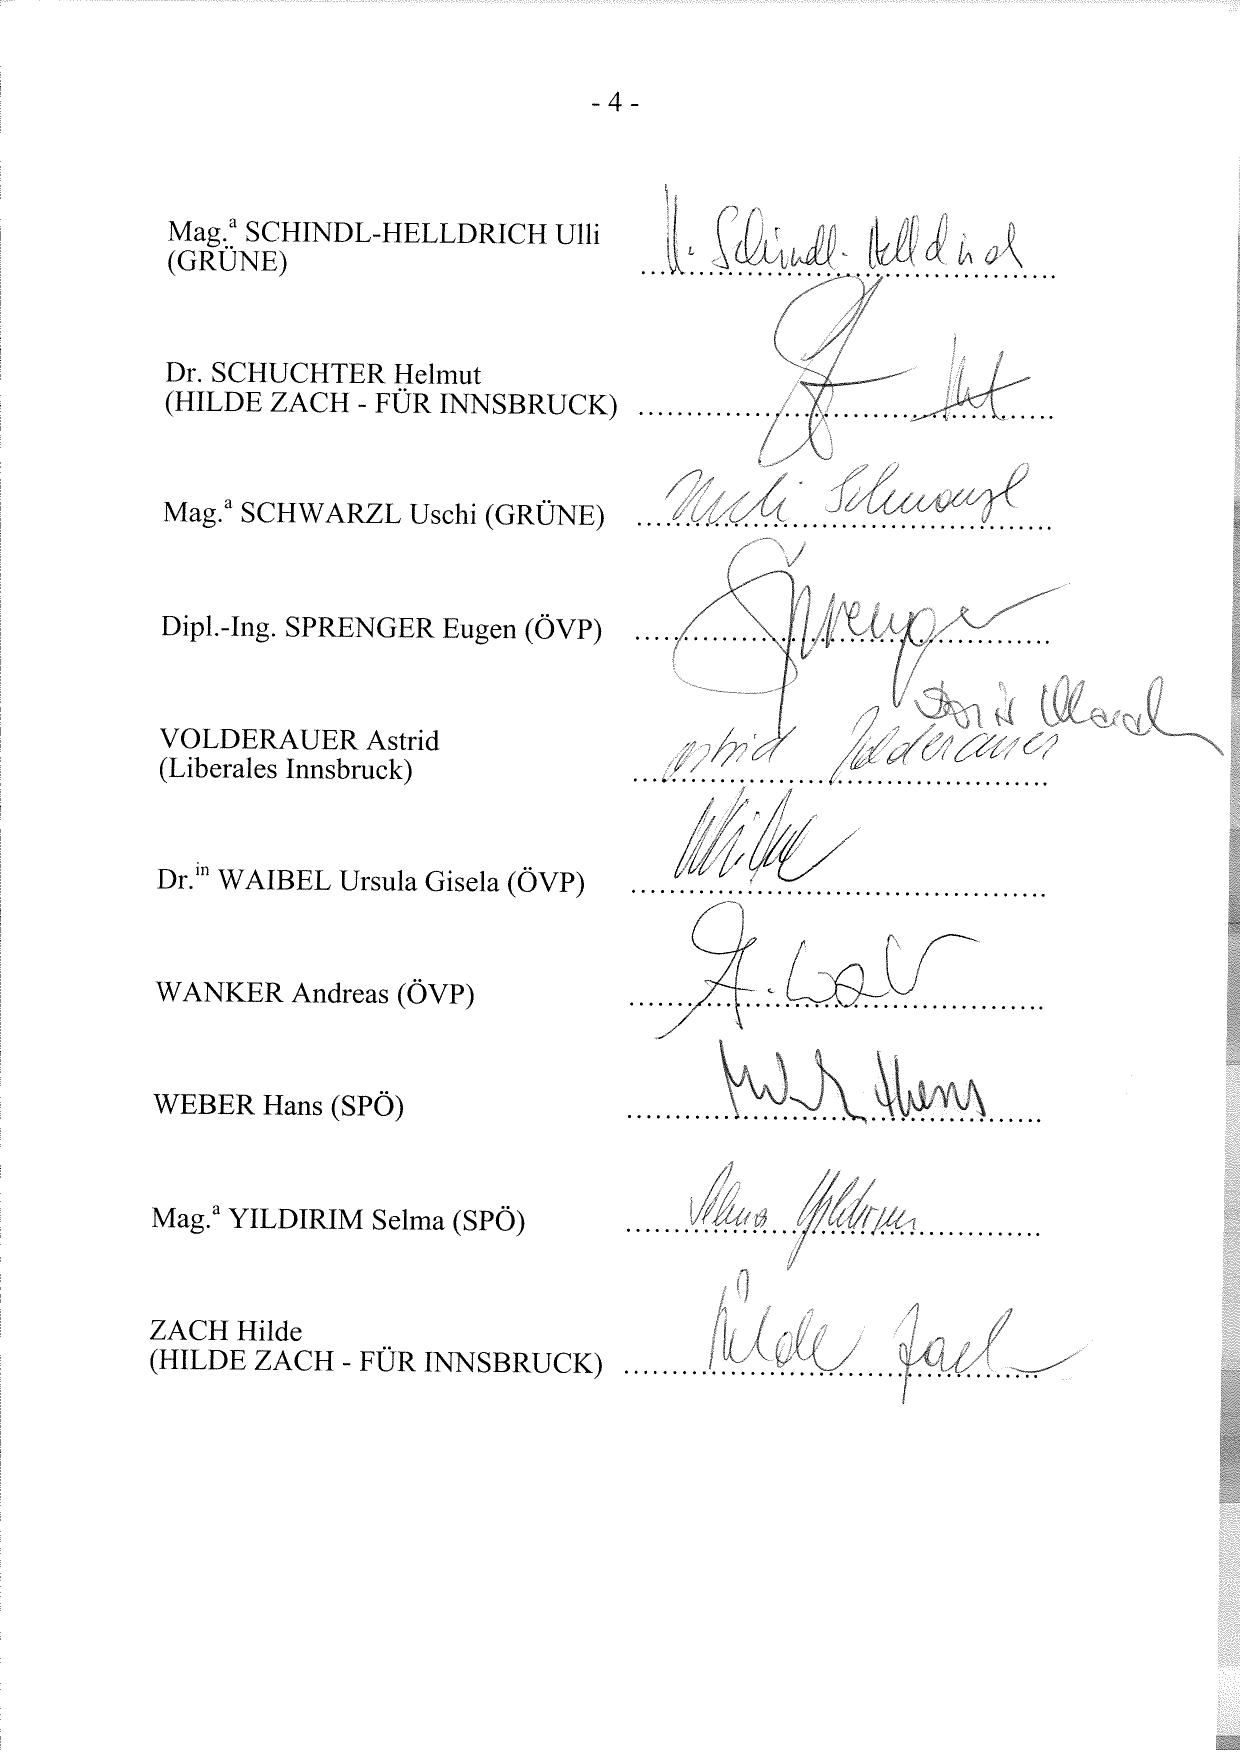 - 4 -
Mag.ª SCHINDL-HELLDRICH Ulli
(GRÜNE)
U. Schindl-Helldrich
Dr. SCHUCHTER Helmut
(HILDE ZACH - FÜR INNSBRUCK)
Mag.ª SCHWARZL Uschi (GRÜNE)
Uschi Schwarzl
Dipl.-Ing. SPRENGER Eugen (ÖVP)
Sprenger
VOLDERAUER Astrid
(Liberales Innsbruck)
Astrid Volderauer
Dr.ⁱⁿ WAIBEL Ursula Gisela (ÖVP)
WANKER Andreas (ÖVP)
WEBER Hans (SPÖ)
Hans
Mag.ª YILDIRIM Selma (SPÖ)
Selma Yildirim
ZACH Hilde
(HILDE ZACH - FÜR INNSBRUCK)
Hilde Zach